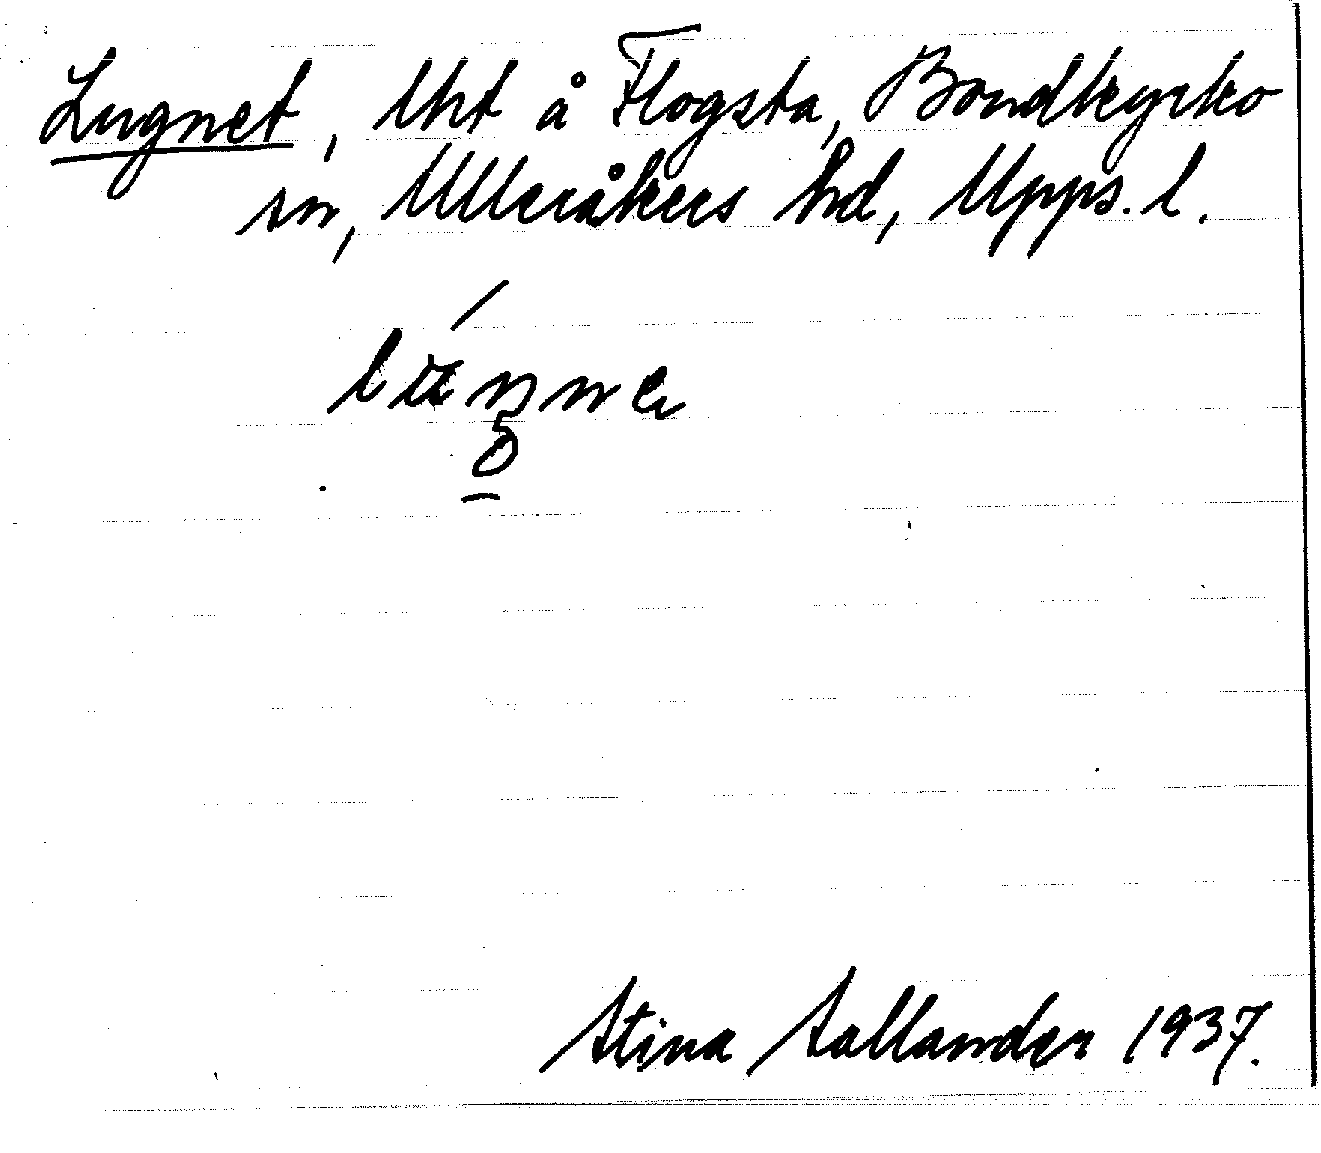 Lugnet, lht å Flogsta, Bondkyrko
sn, Ulleråkers hd, Upps. l.
Stina Sallander 1937.